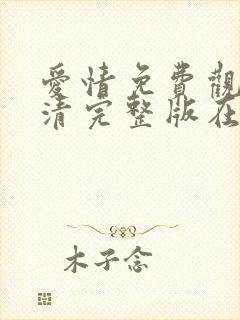 愛情免費觀
清完整版在
木子念